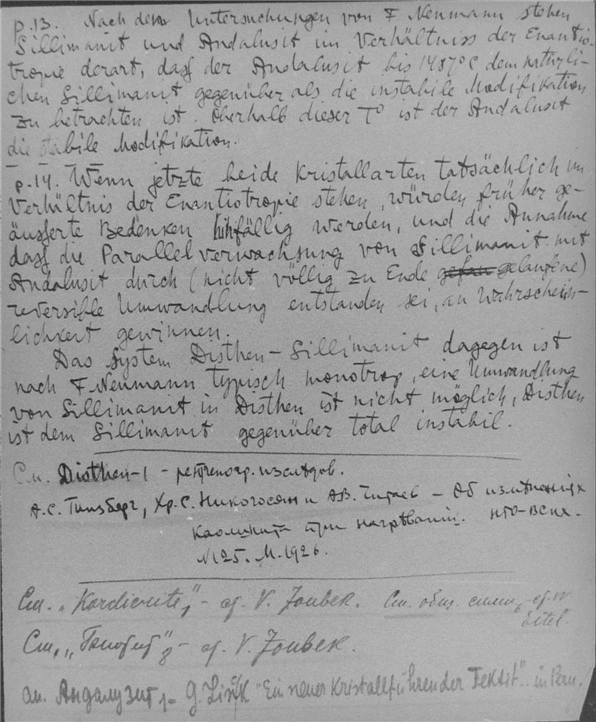 p.13. Nach den Untersuchungen von F. Neumann stehen
Sillimanit und Andalusit im Verhältniss der Enantio-
tropie derart, daß der Andalusit bis 1487°C dem natürli-
chen Sillimanit gegenüber als die instabile Modifikation
zu betrachten ist. Oberhalb dieser T° ist der Andalusit
die stabile Modifikation.
p.14. Wenn jetzte beide Kristallarten tatsächlich im
Verhältnis der Enantiotropie stehen, würden früher ge-
äusserte Bedenken hinfällig werden, und die Annahme
daß die Parallelverwachsung von Sillimanit mit
Andalusit durch (nicht völlig zu Ende gelaufene)
reversible Umwandlung entstanden sei, an Wahrschein-
lichkeit gewinnen.
Das System Disthen-Sillimanit dagegen ist
nach F. Neumann typisch monotrop, eine Umwandlung
von Sillimanit in Disthen ist nicht möglich, Disthen
ist dem Sillimanit gegenüber total instabil.
См. Disthen-1 - рентгеногр. исследов.
А.С. Гинзберг, Хр.С. Никогосян и А.В. - Об изменениях
каолинита при нагревании.
№125. М. 1926.
См. „Kordierite", - cf. V. Zoubek. См. общ. cf. W.
Eitel.
См. - cf. V. Zoubek.
Андалузит, - G. "Ein neuer Kristallführender Tektit" in